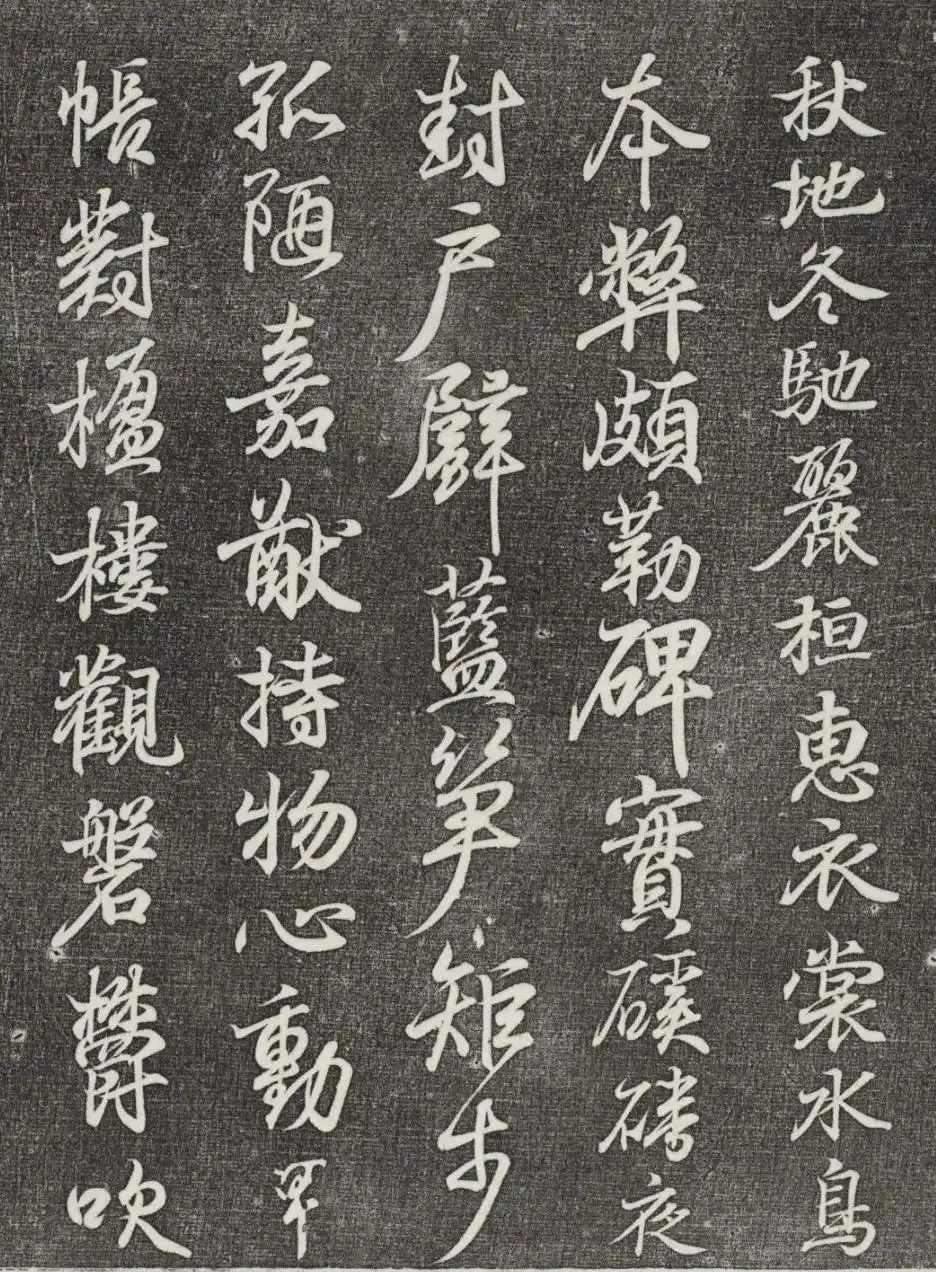 秋地冬馳麗桓惠衣裳水鳥
本弊頗勒碑實磎夜
封戶藍笋矩步
孤陋嘉猷持物心動甲
帳對楹樓觀磐鬱吹